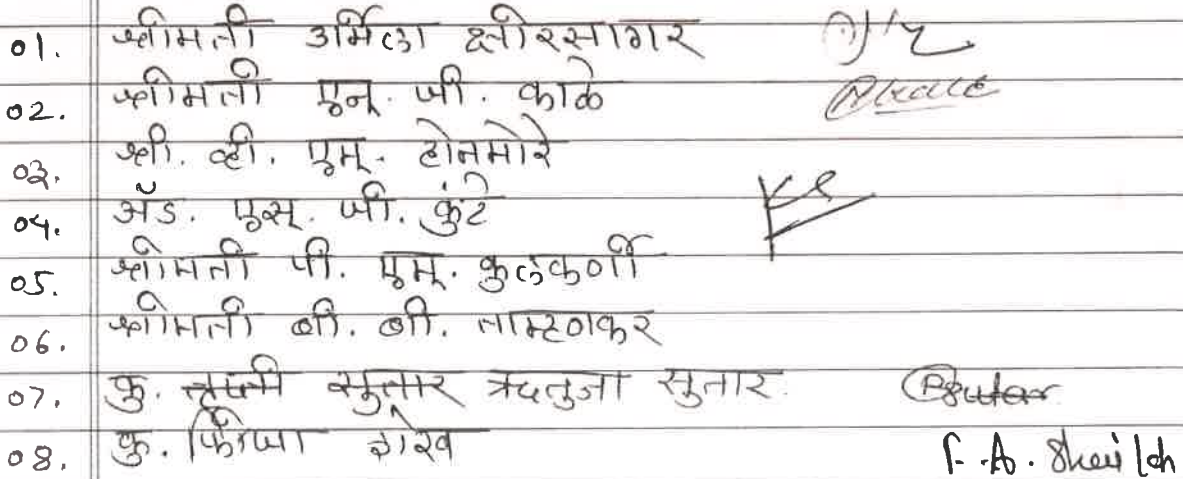 01. श्रीमती उर्मिला क्षीरसागर
02. श्रीमती एन्. जी. काळे
03. श्री. व्ही. एम्. होनमोरे
04. ॲड. एस्. जी. कुंटे
05. श्रीमती पी. एम्. कुलकर्णी
06. श्रीमती बी. बी. ताम्हणकर
07. कु. तृप्ती सुतार ऋतुजा सुतार.
08. कु. फिजा शेख F. A. Sheikh